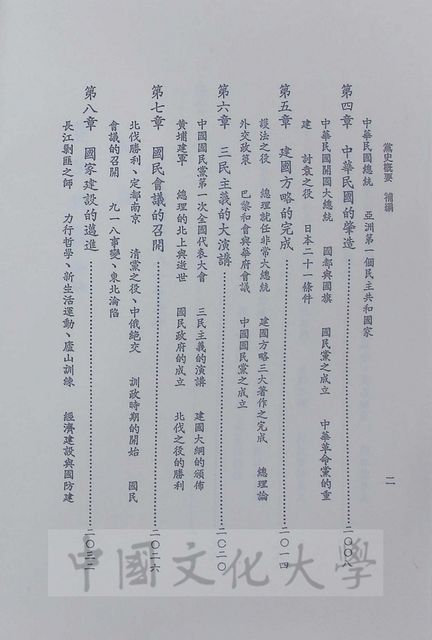 黨史概要　補編
二
中華民國總統　亞洲第一個民主共和國家
第四章　中華民國的肇造……二〇〇八
中華民國開國大總統　國都與國旗　國民黨之成立　中華革命黨的重
建　討袁之役　日本二十一條件
第五章　建國方略的完成……二〇一四
護法之役　總理就任非常大總統　建國方略三大著作之完成　總理論
外交政策　巴黎和會與華府會議　中國國民黨之成立
第六章　三民主義的大演講……二〇二〇
中國國民黨第一次全國代表大會　三民主義的演講　建國大綱的頒佈
黃埔建軍　總理的北上與逝世　國民政府的成立　北伐之役的勝利
第七章　國民會議的召開……二〇二六
北伐勝利、定都南京　清黨之役、中俄絕交　訓政時期的開始　國民
會議的召開　九一八事變、東北淪陷
第八章　國家建設的邁進……二〇三二
長江剿匪之師　力行哲學、新生活運動、廬山訓練　經濟建設與國防建
中國文化大學